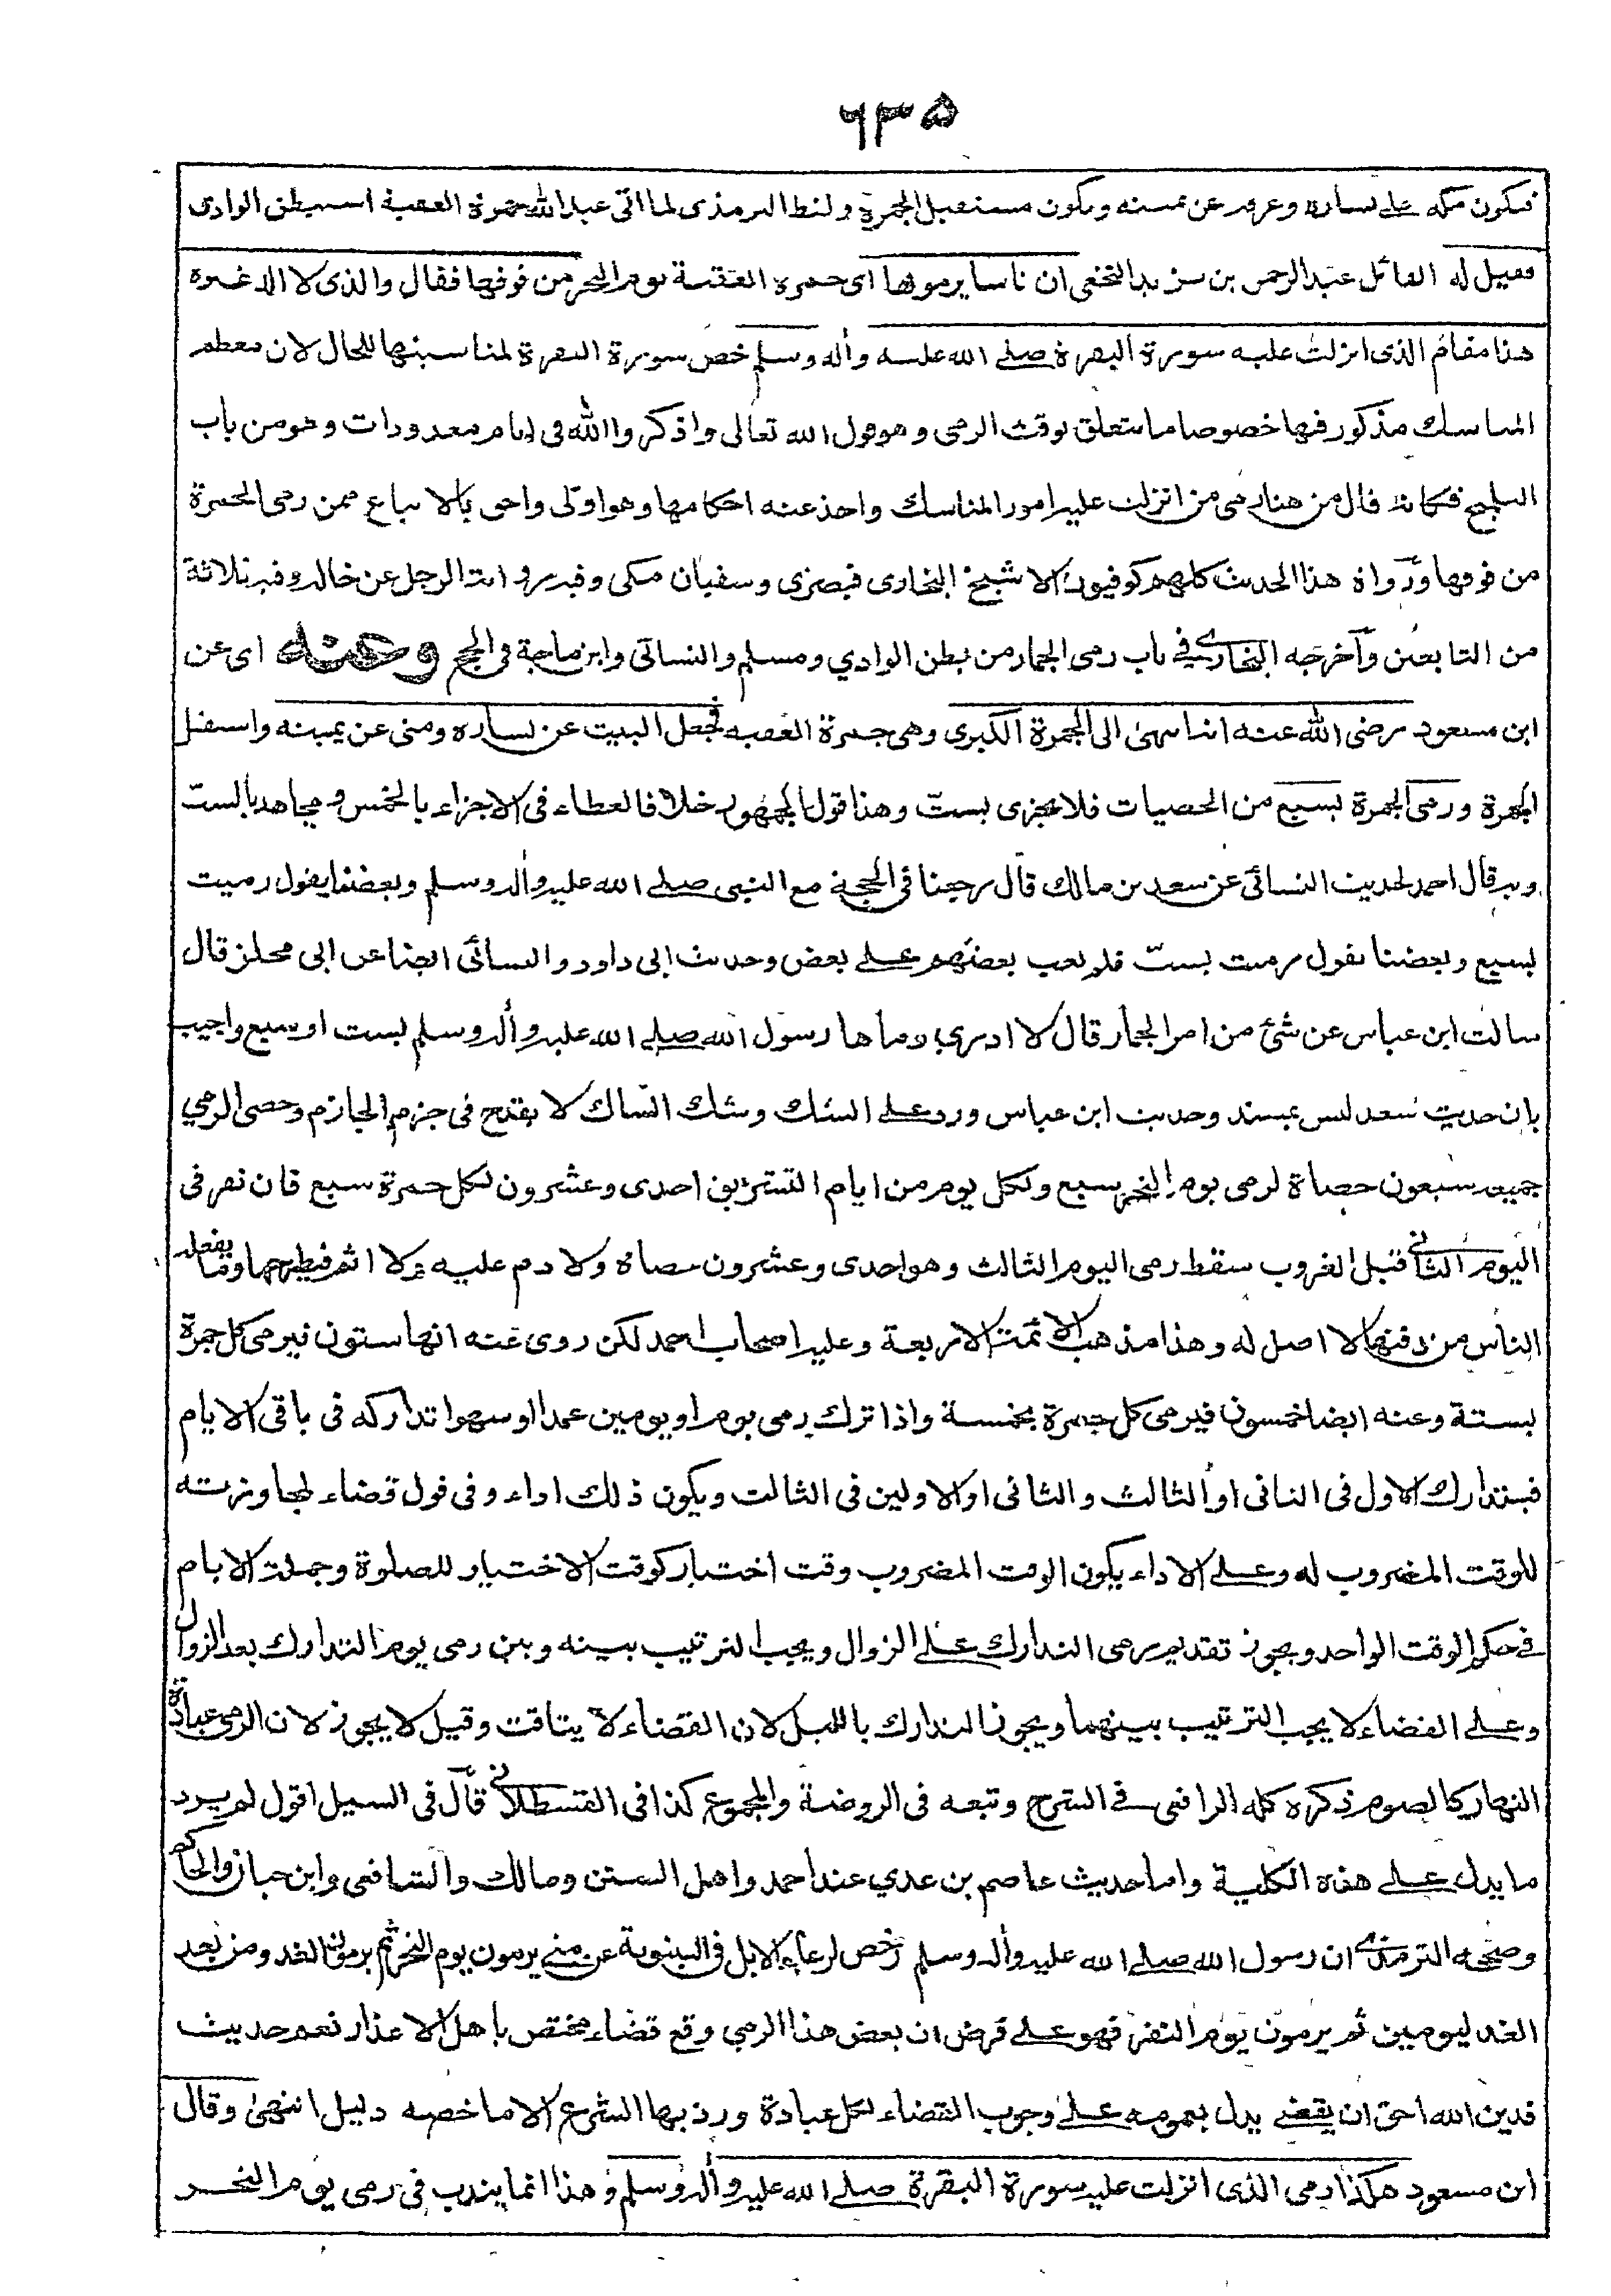 ٦٣٥
فتكون مكة على يساره وعرفه عن يمينه ويكون مستقبل الجمرة ولفظ الترمذى لما اتى عبد الله جمرة العقبة استبطن الوادى
فقيل له القائل عبد الرحمن بن يزيد النخعى ان ناسا يرمونها اى جمرة العقبة يوم النحر من فوقها فقال والذى لا اله غيره
هذا مقام الذى انزلت عليه سورة البقرة صلى الله عليه وأله وسلم خص سورة البقرة لمناسبتها للحال لان معظم
المناسك مذكور فيها خصوصا ما يتعلق بوقت الرمى وهو قول الله تعالى واذكروا الله فى ايام معدودات وهو من باب
التلميح فكانه قال من هنا رمى من انزلت عليه امور المناسك واخذ عنه احكامها وهو اولى واحق بالاتباع ممن رمى الجمرة
من فوقها ورواة هذا الحديث كلهم كوفيون الا شيخ البخارى فبصرى وسفيان مكى وفيه رواية الرجل عن خاله وفيه ثلاثة
من التابعين وأخرجه البخارى فى باب رمى الجمار من بطن الوادي ومسلم والنسائى وابن ماجة فى الحج وعنه اى عن
ابن مسعود رضى الله عنه انه انتهى الى الجمرة الكبرى وهى جمرة العقبه فجعل البيت عن يساره ومنى عن يمينه واستقبل
الجمرة ورمى الجمرة بسبع من الحصيات فلا تجزى بست وهذا قول الجمهور خلافا لعطاء فى الاجزاء بالخمس ومجاهد بالست
وبه قال احمد لحديث النسائى عن سعد بن مالك قال رجعنا فى الحجة مع النبى صلى الله عليه وأله وسلم وبعضنا يقول رميت
بسبع وبعضنا يقول رميت بست فلم يعب بعضهم على بعض وحديث ابى داود والنسائى ايضا عن ابى مجلز قال
سالت ابن عباس عن شئ من امر الجمار قال لا ادري رماها رسول الله صلى الله عليه وأله وسلم بست او سبع واجيب
بان حديث سعد ليس بمسند وحديث ابن عباس ورد على الشك وشك الشاك لا يقدح فى جزم الجازم وحصى الرمي
جميعه سبعون حصاة لرمى يوم النحر سبع ولكل يوم من ايام التشريق احدى وعشرون لكل جمرة سبع فان نفر فى
اليوم الثانى قبل الغروب سقط رمى اليوم الثالث وهو احدى وعشرون حصاة ولا دم عليه ولا اثم فيطرحها وما يفعله
الناس من دفنها لا اصل له وهذا مذهب الائمة الاربعة وعليه اصحاب احمد لكن روى عنه انها ستون فيرمى كل جمرة
بستة وعنه ايضا خمسون فيرمى كل جمرة بخمسة واذا ترك رمى يوم او يومين عمدا او سهوا تداركه فى باقى الايام
فيتدارك الاول فى الثانى او الثالث والثانى او الاولين فى الثالث ويكون ذلك اداء وفى قول قضاء لمجاوزته
للوقت المضروب له وعلى الاداء يكون الوقت المضروب وقت اختيار كوقت الاختيار للصلوة وجملة الايام
فى حكم الوقت الواحد ويجوز تقديم رمى التدارك على الزوال ويجب الترتيب بينه وبين رمى يوم التدارك بعد الزوال
وعلى القضاء لا يجب الترتيب بينهما ويجوز التدارك بالليل لان القضاء لا يتاقت وقيل لا يجوز لان الرمى عبادة
النهار كالصوم ذكره كله الرافعى فى الشرح وتبعه فى الروضة والمجموع كذا فى القسطلانى قال فى السيل اقول لم يرد
ما يدل على هذه الكلية واما حديث عاصم بن عدي عند احمد واهل السنن ومالك والشافعى وابن حبان والحاكم
وصححه الترمذى ان رسول الله صلى الله عليه وأله وسلم رخص لرعاء الابل فى البيتوتة عن منى يرمون يوم النحر ثم يرمون الغد ومن بعد
الغد ليومين ثم يرمون يوم النفر فهو على فرض ان بعض هذا الرمي وقع قضاء مختص باهل الاعذار نعم حديث
فدين الله احق ان يقضى يدل بعمومه على وجوب القضاء لكل عبادة ورد بها الشرع الا ما خصه دليل انتهى وقال
ابن مسعود هكذا رمى الذى انزلت عليه سورة البقرة صلى الله عليه وأله وسلم وهذا انما يندب فى رمى يوم النحر